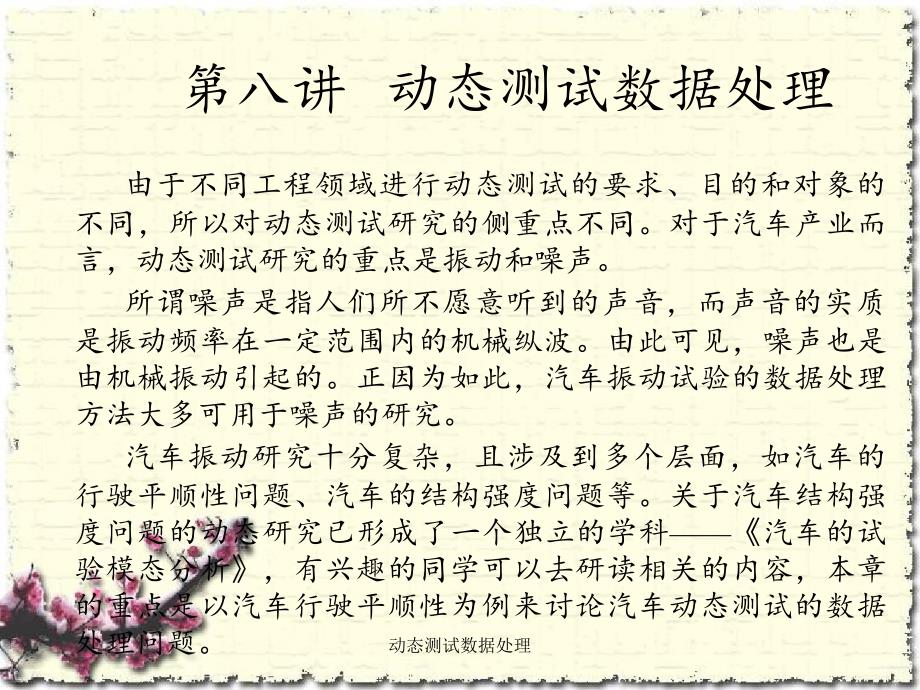 第八讲 动态测试数据处理
由于不同工程领域进行动态测试的要求、目的和对象的
不同，所以对动态测试研究的侧重点不同。对于汽车产业而
言，动态测试研究的重点是振动和噪声。
所谓噪声是指人们所不愿意听到的声音，而声音的实质
是振动频率在一定范围内的机械纵波。由此可见，噪声也是
由机械振动引起的。正因为如此，汽车振动试验的数据处理
方法大多可用于噪声的研究。
汽车振动研究十分复杂，且涉及到多个层面，如汽车的
行驶平顺性问题、汽车的结构强度问题等。关于汽车结构强
度问题的动态研究已形成了一个独立的学科——《汽车的试
验模态分析》，有兴趣的同学可以去研读相关的内容，本章
的重点是以汽车行驶平顺性为例来讨论汽车动态测试的数据
处理问题。
动态测试数据处理